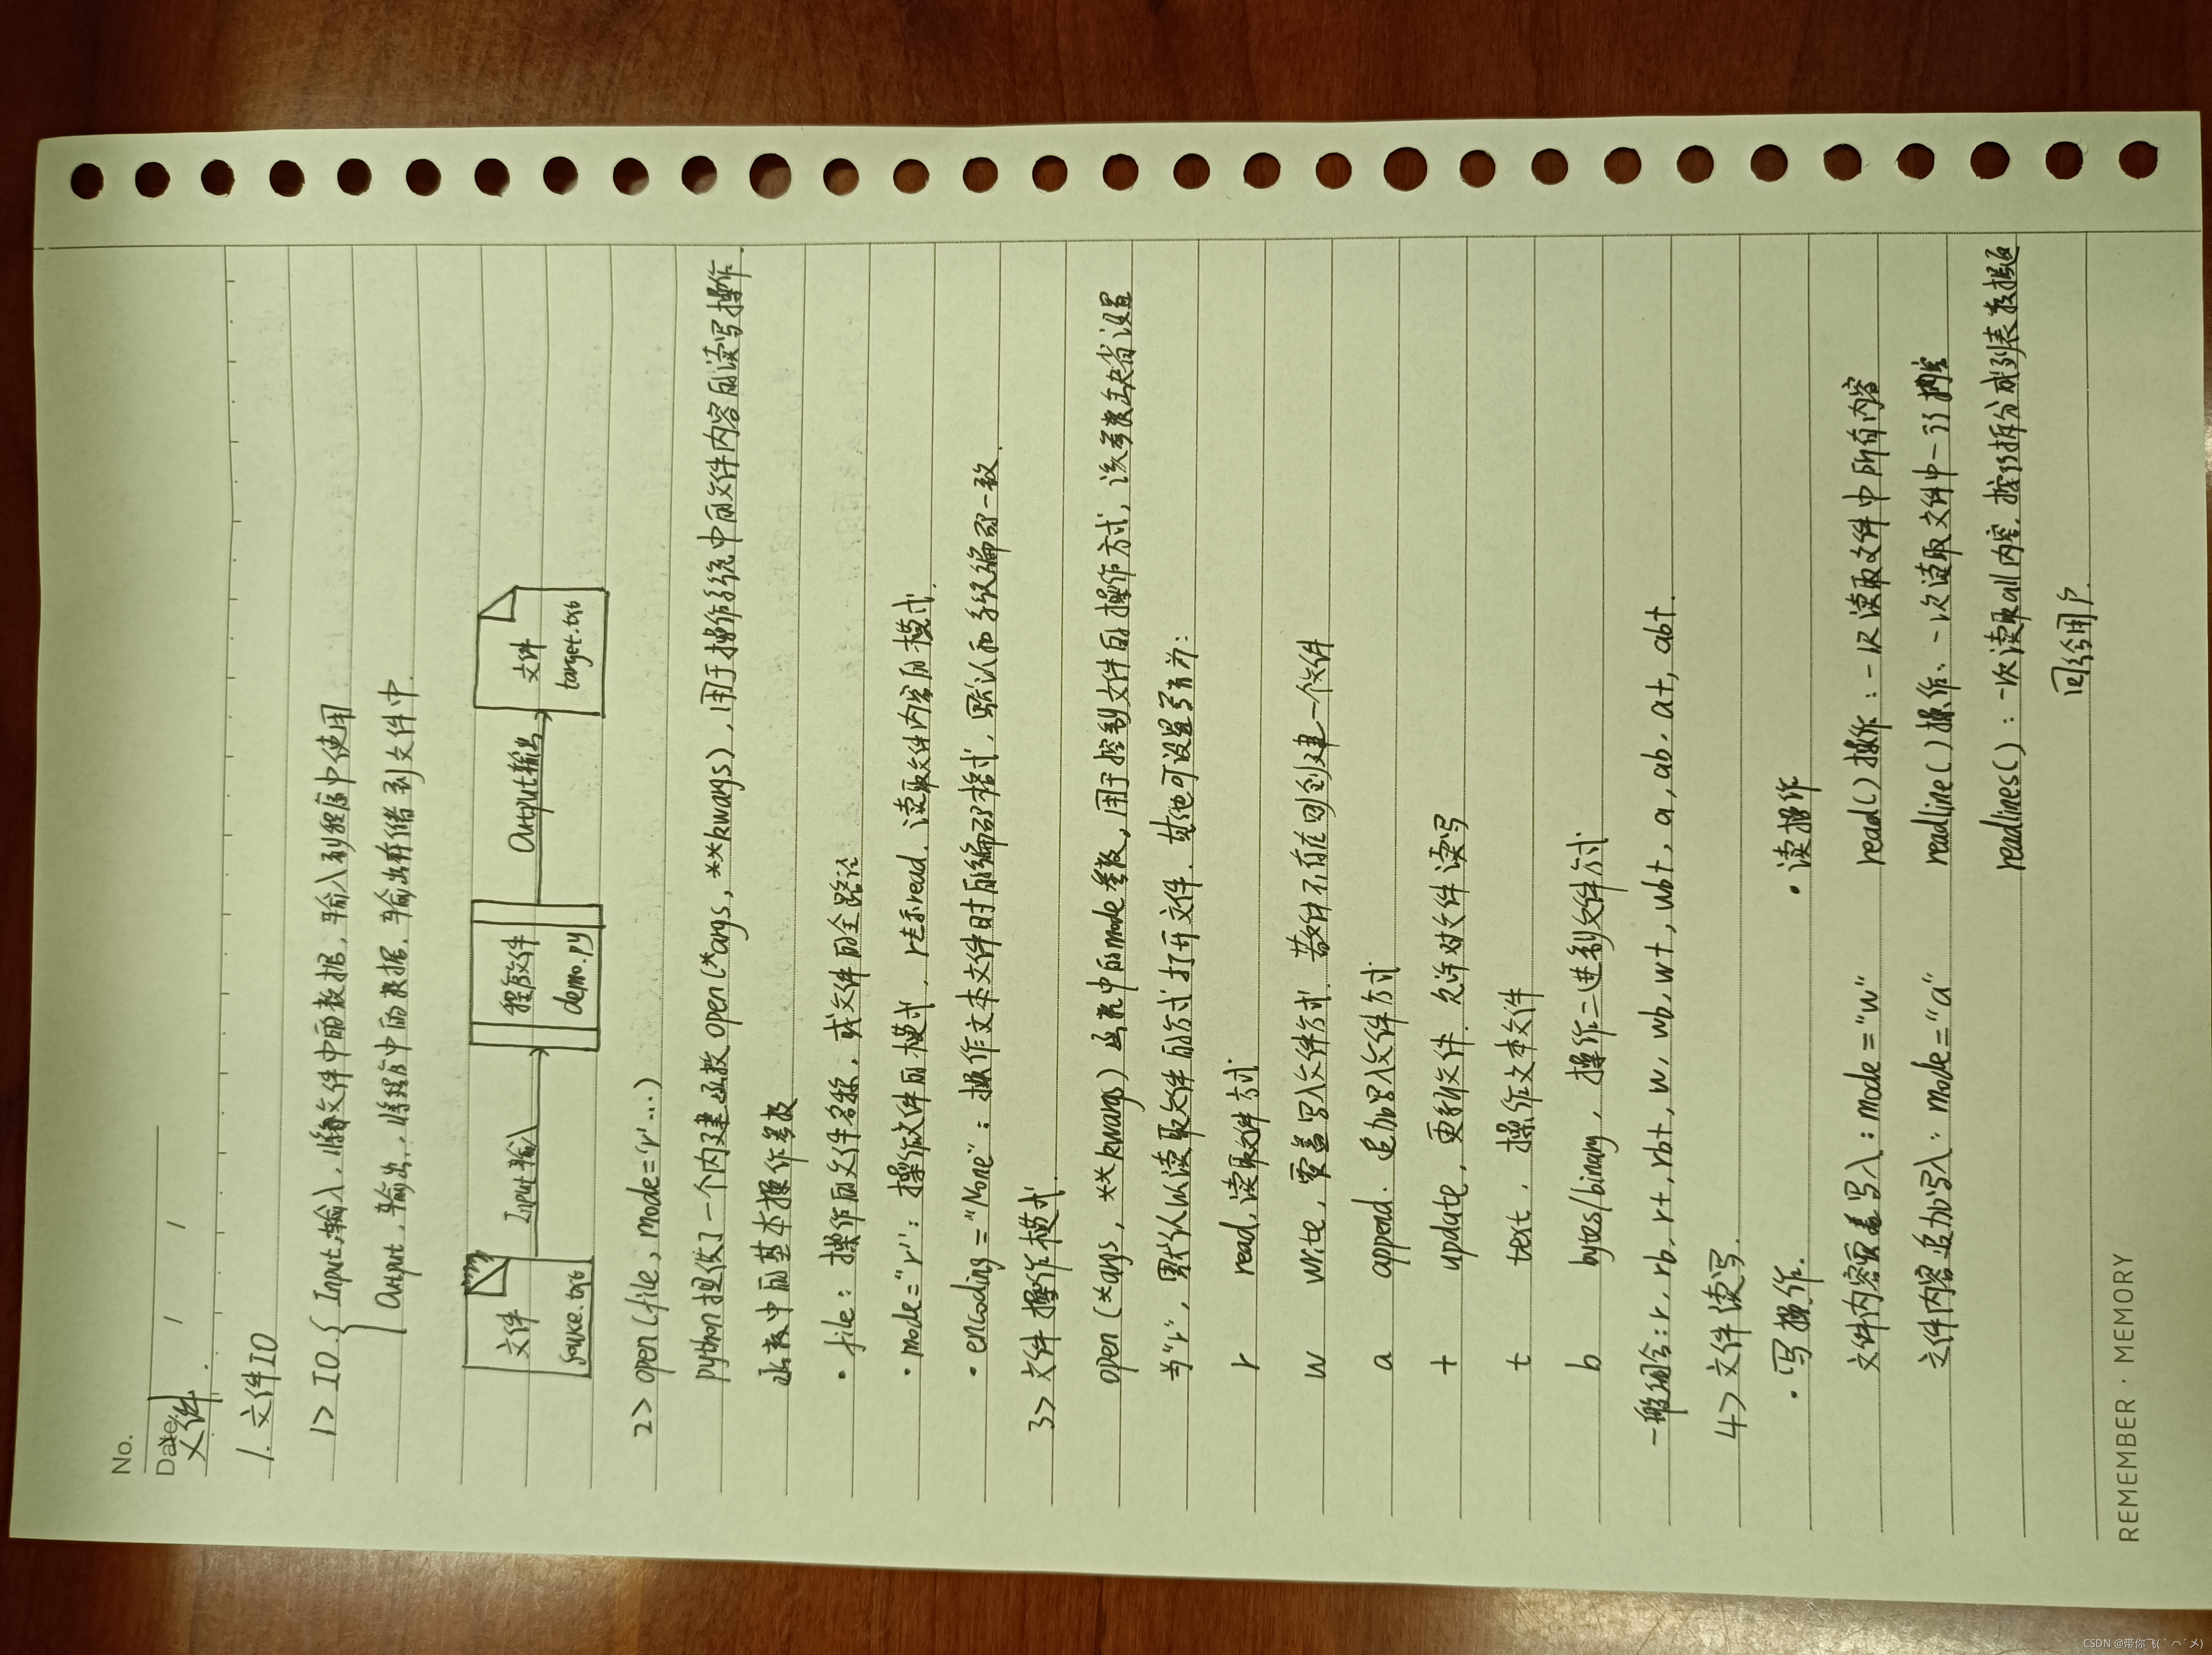 No.
Date / /
文件.
1. 文件IO
1> IO. { Input, 输入, 将文件中的数据, 输入到程序中使用
Output, 输出, 将程序中的数据, 输出存储到文件中.
文件 Input输入 程序文件 Output输出 文件
demo.py target.txt
2> open(file, mode='r'...)
python提供了一个内建函数open(*args, **kwargs), 用于操作系统中的文件内容的读写操作.
函数中的基本操作参数
· file: 操作的文件名称, 或文件的全路径
· mode="r": 操作文件的模式, r表示read, 读取文件内容的模式.
· encoding="None": 操作文本文件时的编码格式, 默认和系统编码一致.
3> 文件操作模式.
open(*args, **kwargs)函数中的mode参数, 用于控制文件的操作方式, 该参数缺省设置
为"r", 默认以读取文件的方式打开文件. 其他可设置项为:
r read, 读取文件方式
w write, 覆盖写入文件方式. 若文件不存在则创建一个文件
a append. 追加写入文件方式
+ update, 更新文件. 允许对文件读写
t text, 操作文本文件
b bytes/binary, 操作二进制文件方式
一般组合: r, rb, rt, rbt, w, wb, wt, wbt, a, ab, at, abt.
4> 文件读写.
· 写操作. · 读操作
文件内容覆盖写入: mode="w" read()操作: 一次读取文件中所有内容
文件内容追加写入: mode="a" readline()操作: 一次读取文件中一行内容
readlines(): 一次读取all内容, 按行拆分成列表数据返
回给用户.
REMEMBER · MEMORY
CSDN @带你飞(